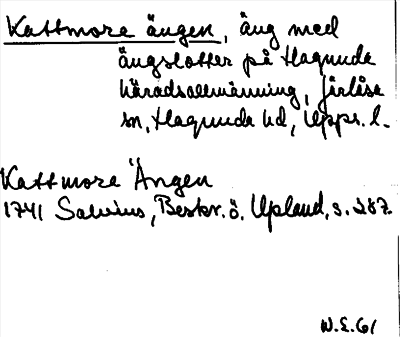 Kattmore ängen, äng med
ängslotter på Hagunda
häradsallmänning, Järlåsa
sn, Hagunda hd, Upps. l.
Kattmore Ängen
1741 Salvius, Beskr. ö. Upland, s. 287.
N.E.61